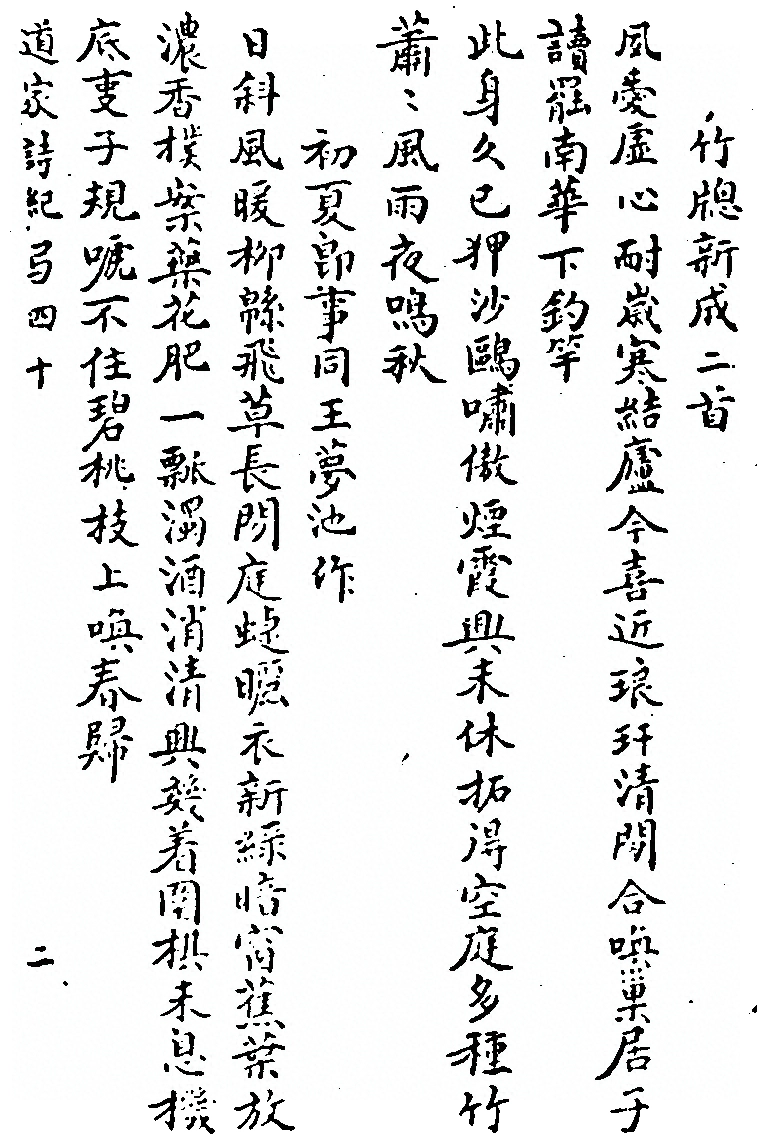 竹牕新成二首
風愛虛心耐歲寒結廬今喜近琅玕清閒合喚巢居子
讀罷南華下釣竿
此身久已狎沙鷗嘯傲煙霞興未休拓得空庭多種竹
蕭〻風雨夜鳴秋
初夏即事同王夢池作
日斜風暖柳緜飛草長閒庭蜨曬衣新綠暗窗蕉葉放
濃香撲案藥花肥一瓢濁酒消清興幾着圍棋未息機
底事子規嗁不住碧桃枝上喚春歸
道家詩紀弓四十
二